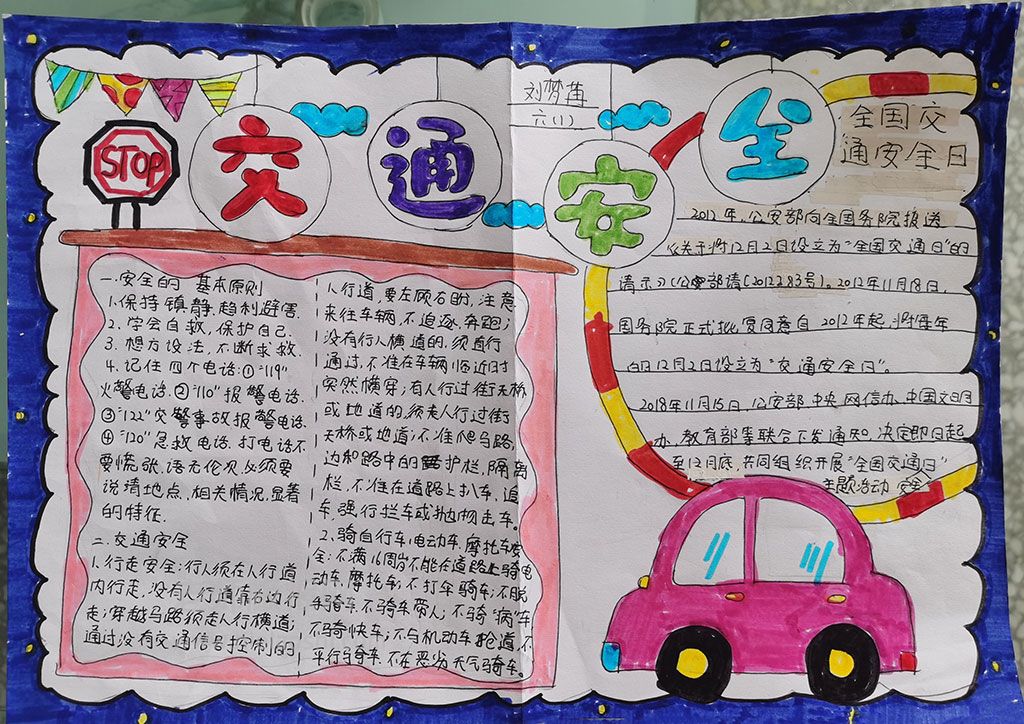 交通安全
刘梦苒
六(1)
STOP
一.安全的 基本原则
1.保持镇静,趋利避害.
2.学会自救,保护自己.
3.想方设法,不断求救.
4.记住四个电话:①“119”
火警电话.②“110”报警电话.
③“122”交警事故报警电话.
④“120”急救电话.打电话不
要慌张、语无伦次,必须要
说清地点、相关情况,显著
的特征.
二.交通安全
1.行走安全:行人须在人行道
内行走,没有人行道靠右边行
走;穿越马路须走人行横道;
通过没有交通信号控制的
人行道,要左顾右盼,注意
来往车辆,不追逐,奔跑;
没有行人横道的,须直行
通过,不准在车辆临近时
突然横穿;有人行过街天桥
或地道的,须走人行过街
天桥或地道;不准爬马路
边和路中的护栏、隔离
栏,不准在道路上扒车、追
车、强行拦车或抛物击车。
2.骑自行车;电动车.摩托车安
全:不满16周岁不能在道路上骑电
动车、摩托车;不打伞骑车;不脱
手骑车,不骑车带人;不骑“病”车
不骑快车;不与机动车抢道,不
平行骑车,不在恶劣天气骑车。
全国交
通安全日
2012年,公安部向全国务院报送
《关于将12月2日设立为“全国交通日”的
请示》(公安部请[201228 3号)。2012年11月18日,
国务院正式批复同意自 2012年起,将每年
的12月2日设立为“交通安全日”。
2018年11月15日,公安部.中央网信办.中国文明
办.教育部等联合下发通知,决定即日起
至12月底,共同组织开展“全国交通日”
主题活动 安全